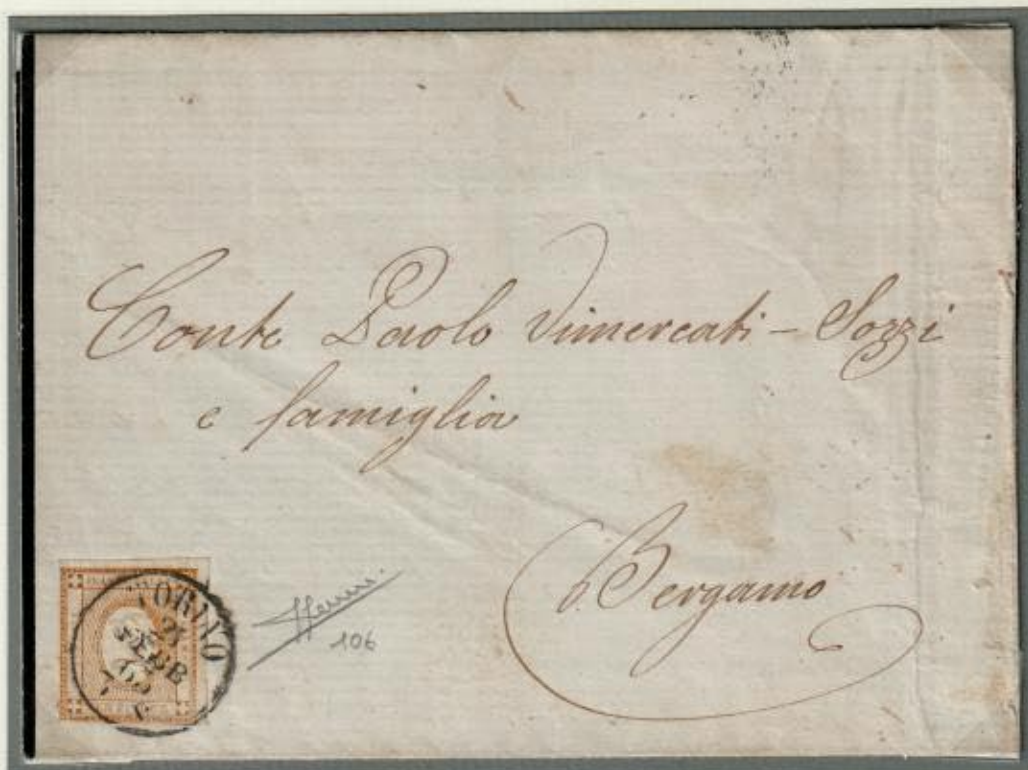 Conte Paolo Vimercati - Sozzi
e famiglia
Bergamo
TORINO
21
FEBB
63
106